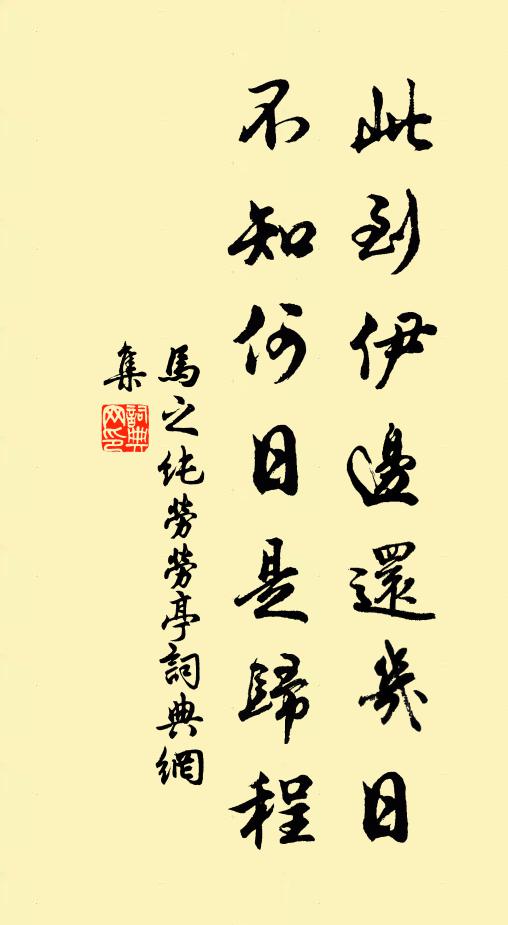 此到伊邊還幾日
不知何日是歸程
馬之純勞勞亭詞典網
集
詞典
网印